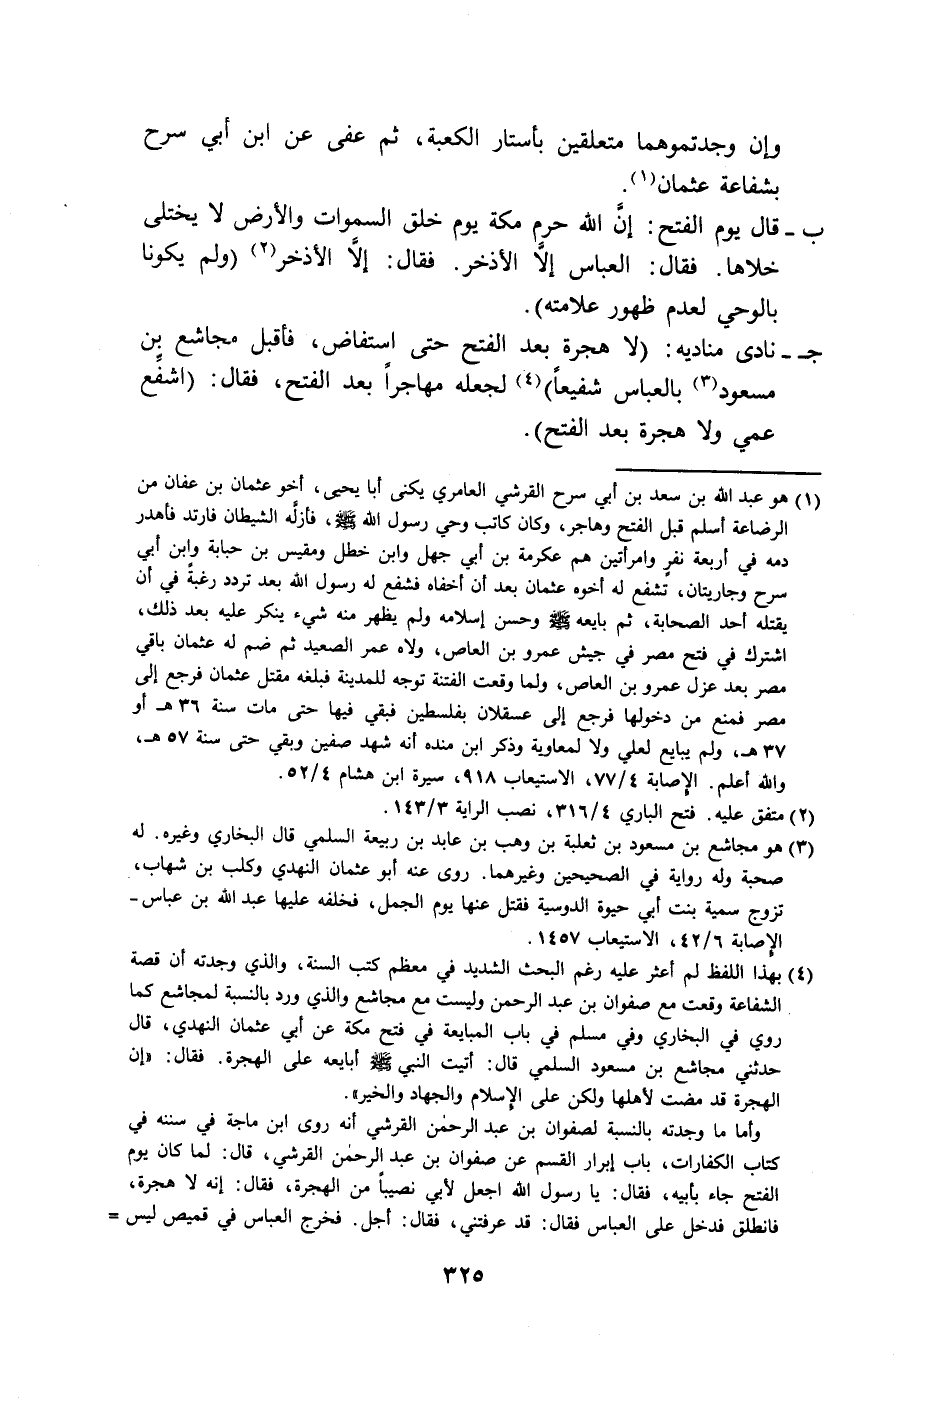 وإن وجدتموهما متعلقين بأستار الكعبة، ثم عفى عن ابن أبي سرح
بشفاعة عثمان(١).
ب ـ قال يوم الفتح: إنَّ الله حرم مكة يوم خلق السموات والأرض لا يختلى
خلاها. فقال: العباس إلَّا الأذخر. فقال: إلَّا الأذخر(٢) (ولم يكونا
بالوحي لعدم ظهور علامته).
جـ ـ نادى مناديه: (لا هجرة بعد الفتح حتى استفاض، فأقبل مجاشع بن
مسعود(٣) بالعباس شفيعاً)(٤) لجعله مهاجراً بعد الفتح، فقال: (اشفَّع
عمي ولا هجرة بعد الفتح).
(١) هو عبد الله بن سعد بن أبي سرح القرشي العامري يكنى أبا يحيى، أخو عثمان بن عفان من
الرضاعة أسلم قبل الفتح وهاجر، وكان كاتب وحي رسول الله ﷺ، فأزلَّه الشيطان فارتد فأهدر
دمه في أربعة نفرٍ وامرأتين هم عكرمة بن أبي جهل وابن خطل ومقيس بن حبابة وابن أبي
سرح وجاريتان، تشفع له أخوه عثمان بعد أن أخفاه فشفع له رسول الله بعد تردد رغبةً في أن
يقتله أحد الصحابة، ثم بايعه ﷺ وحسن إسلامه ولم يظهر منه شيء ينكر عليه بعد ذلك،
اشترك في فتح مصر في جيش عمرو بن العاص، ولاه عمر الصعيد ثم ضم له عثمان باقي
مصر بعد عزل عمرو بن العاص، ولما وقعت الفتنة توجه للمدينة فبلغه مقتل عثمان فرجع إلى
مصر فمنع من دخولها فرجع إلى عسقلان بفلسطين فبقي فيها حتى مات سنة ٣٦ هـ أو
٣٧ هـ، ولم يبايع لعلي ولا لمعاوية وذكر ابن منده أنه شهد صفين وبقي حتى سنة ٥٧ هـ،
والله أعلم. الإصابة ٧٧/٤، الاستيعاب ٩١٨، سيرة ابن هشام ٥٢/٤.
(٢) متفق عليه. فتح الباري ٣١٦/٤، نصب الراية ١٤٣/٣.
(٣) هو مجاشع بن مسعود بن ثعلبة بن وهب بن عابد بن ربيعة السلمي قال البخاري وغيره. له
صحبة وله رواية في الصحيحين وغيرهما. روى عنه أبو عثمان النهدي وكلب بن شهاب،
تزوج سمية بنت أبي حيوة الدوسية فقتل عنها يوم الجمل، فخلفه عليها عبد الله بن عباس ـ
الإصابة ٤٢/٦، الاستيعاب ١٤٥٧.
(٤) بهذا اللفظ لم أعثر عليه رغم البحث الشديد في معظم كتب السنة، والذي وجدته أن قصة
الشفاعة وقعت مع صفوان بن عبد الرحمن وليست مع مجاشع والذي ورد بالنسبة لمجاشع كما
روي في البخاري وفي مسلم في باب المبايعة في فتح مكة عن أبي عثمان النهدي، قال
حدثني مجاشع بن مسعود السلمي قال: أتيت النبي ﷺ أبايعه على الهجرة. فقال: «إن
الهجرة قد مضت لأهلها ولكن على الإسلام والجهاد والخير».
وأما ما وجدته بالنسبة لصفوان بن عبد الرحمٰن القرشي أنه روى ابن ماجة في سننه في
كتاب الكفارات، باب إبرار القسم عن صفوان بن عبد الرحمٰن القرشي، قال: لما كان يوم
الفتح جاء بأبيه، فقال: يا رسول الله اجعل لأبي نصيباً من الهجرة، فقال: إنه لا هجرة،
فانطلق فدخل على العباس فقال: قد عرفتني، فقال: أجل. فخرج العباس في قميص ليس =
٣٢٥